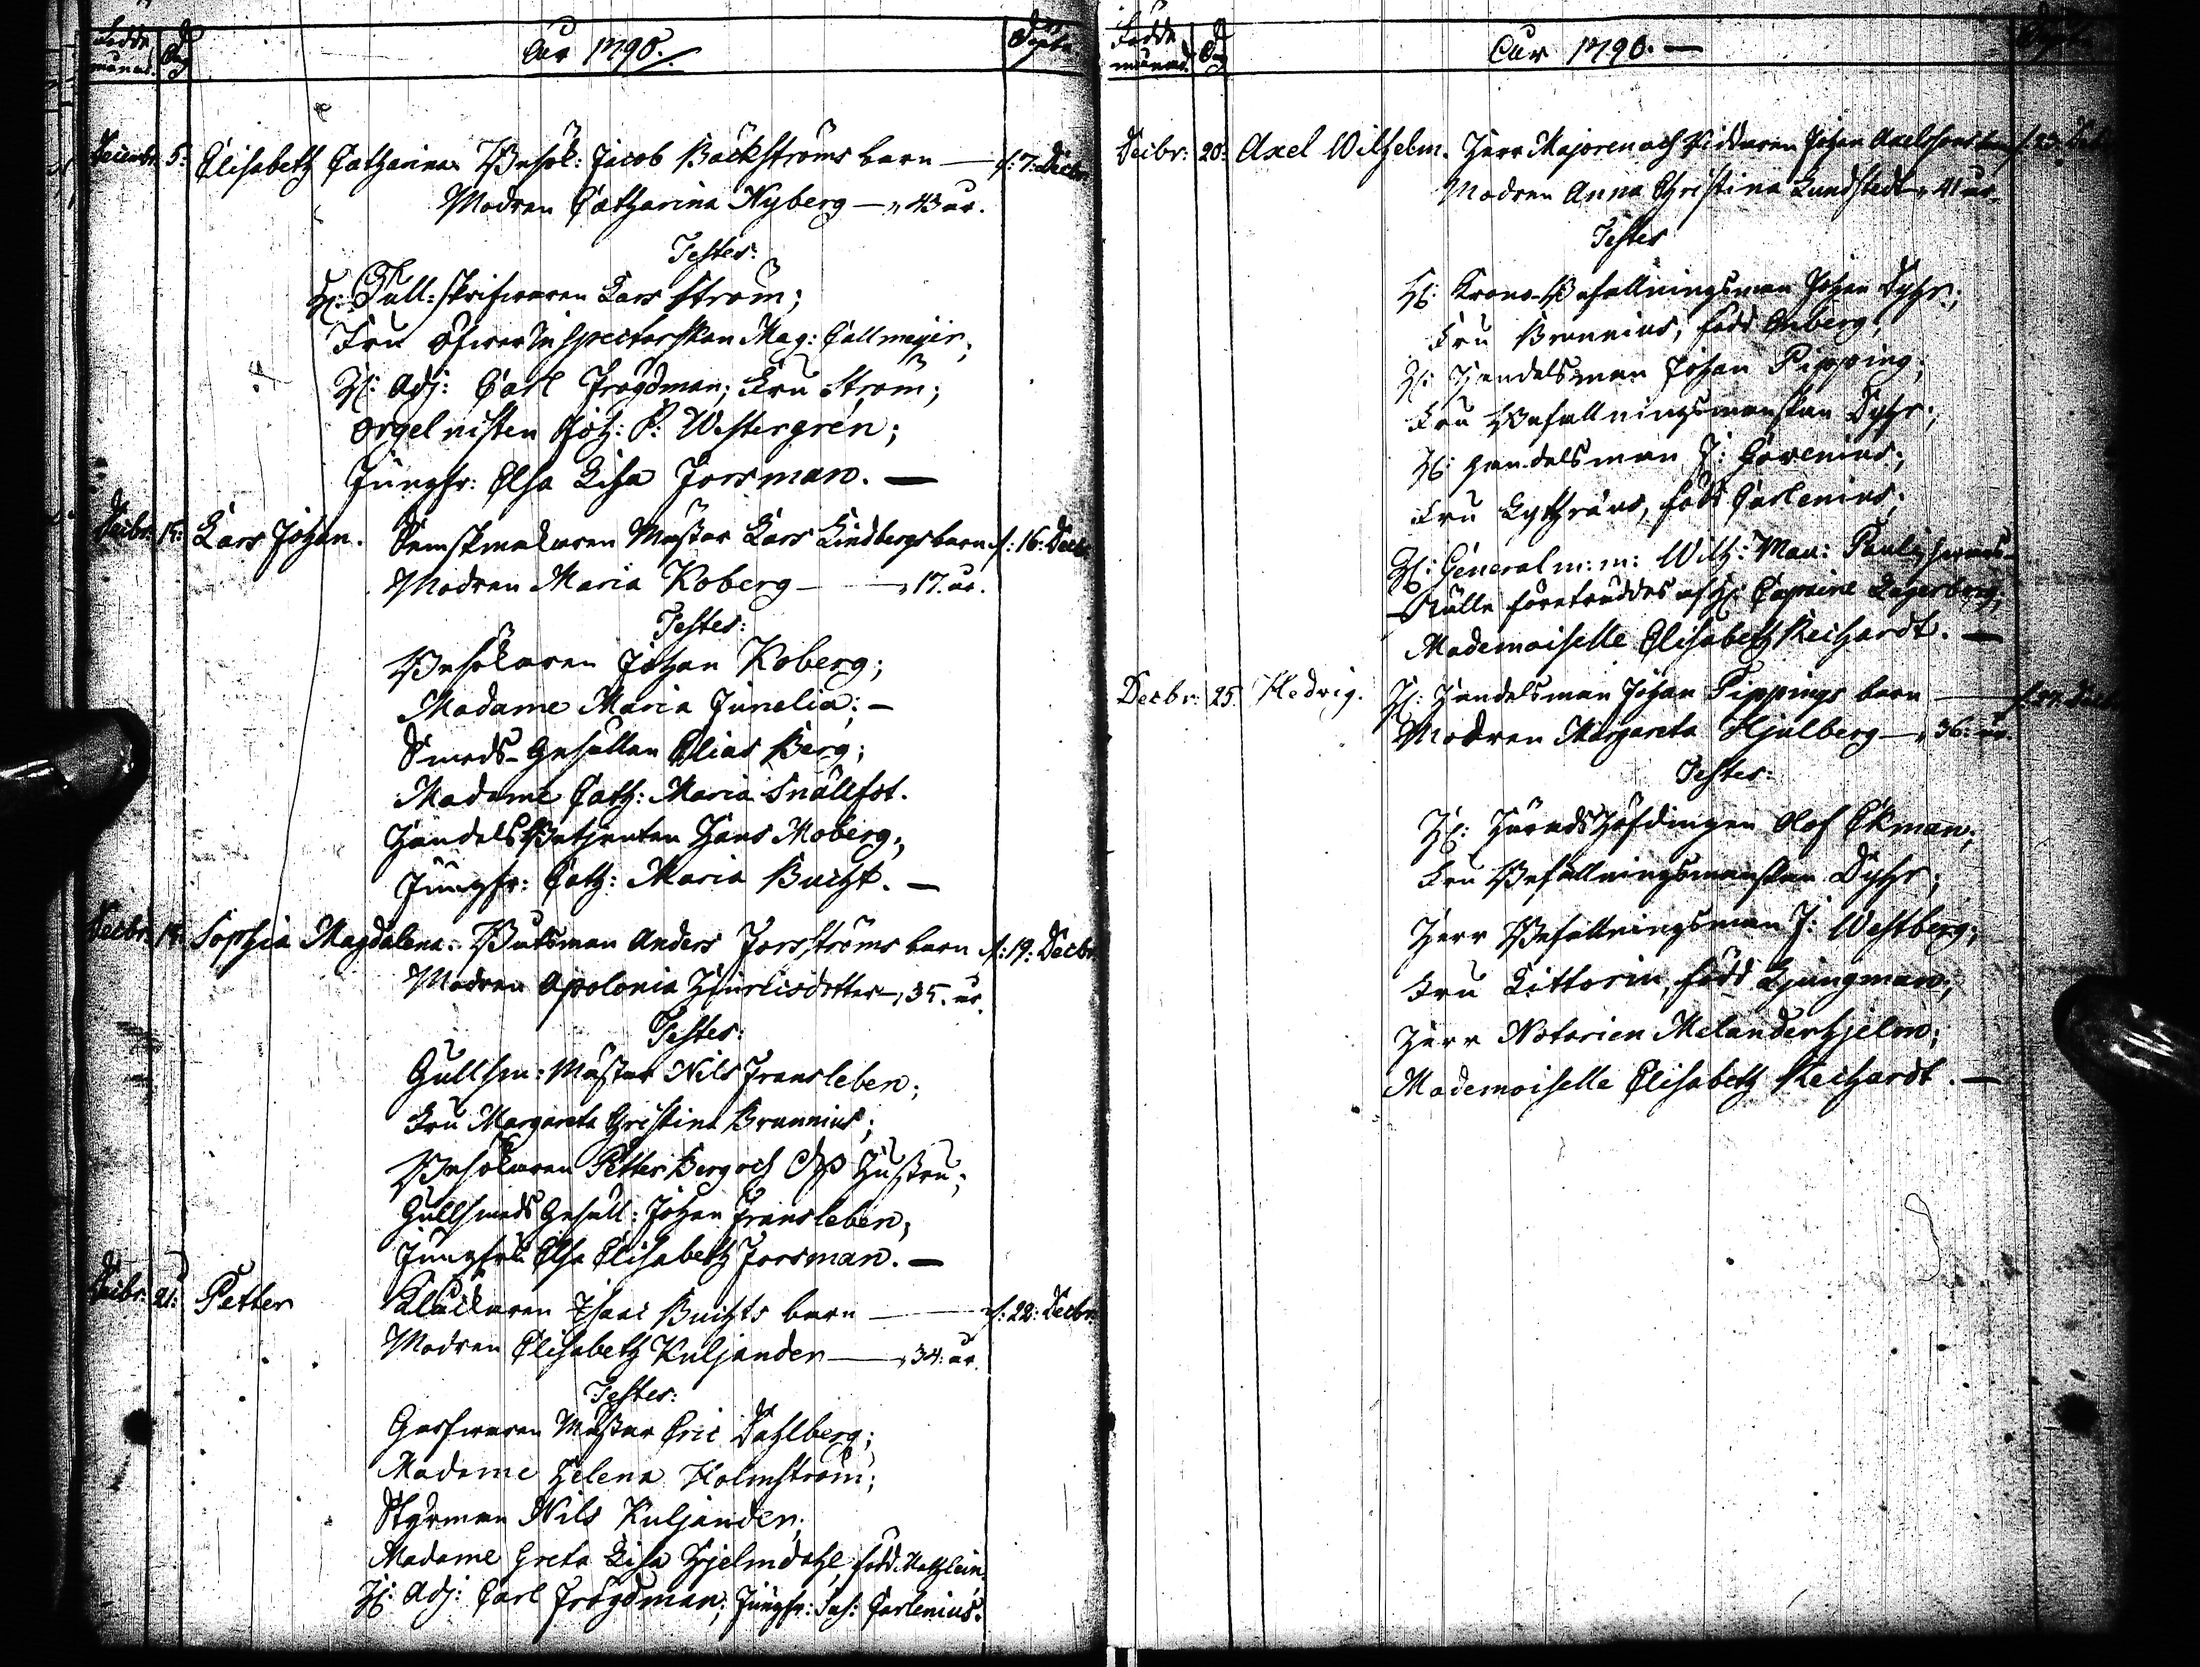 Födde månad. Dag
Åhr 1790.
Döpte
Decembr. 5. Elisabeth Catharina. Besök: Jacob Bäckströms barn — d: 7: Decbr
Modren Catharina Nyberg — 43 år.
Testes:
H: Tull-skrifvaren Lars Ström;
Fru Öfwer Inspectorskan Mag: Callmejer;
H: Adj: Carl Frögdman; Fru Ström;
Orgelnisten Joh: P: Westergrén;
Jungfr: Elsa Lisa Forsman. —
Decbr: Lars Johan. Mästar Lars Lindbergs barn d: 16: Decbr
Modren Maria Koberg — 17. år.
Testes:
Besökaren Johan Koberg;
Madame Maria Junelia; —
Smeds-Gesällen Elias Berg;
Madame Cath: Maria Snällfot.
Handels Betjenten Hans Moberg,
Jungfr: Cath: Maria Bucht. —
Decbr: Sophia Magdalena. Båtsman Anders Forsströms barn d: 19: Decbr.
Modren Apolonia Hinricsdotter — 35. år.
Testes:
Gullsm: Mästar Nils Fransleben;
Fru Margareta Christina Brunnius;
Besökaren Petter Berg och Dess Hustru;
Gullsmeds Gesäll: Johan Fransleben,
Jungfru Elsa Elisabeth Forsman. —
Decbr: 21: Petter Klåckaren Isaac Buchts barn — d: 22: Decbr.
Modren Elisabeth Kuljander — 34: år.
Testes:
Garfwaren Mästar Eric Dahlberg;
Madame Helena Holmström;
Styrman Nils Kuljander;
Madame Greta Lisa Hjelmdahl, född
H: Adj: Carl Frögdman; Jungfr: Carlenius.
Födde månad. Dag
Åhr 1790. —
Decbr: 20: Axel Wilhelm. Herr Majoren och Riddaren Johan Axelssons barn d: 23: Decbr
Modren Anna Christina Lundstedt 41 år.
Testes
H: Krono-Befallningsman Johan Dyhr;
Fru Brunnius, född Enberg;
H: Handelsman Johan Pipping;
Fru Befallningsmanskan Dyhr;
H: Handelsman J:
Fru född Carlenius;
H: General m: m: Wilh: Mau: Pauli, hwars
Ställe företräddes af H: Capitaine Lagerborg;
Mademoiselle Elisabeth Reichardt. —
Decbr: 25. Hedvig. H: Handelsman Johan Pippings barn — d: 27: Decbr
Modren Margareta Hjulberg — 36: år.
Testes:
H: Härads Höfdingen Olof Ekman;
Fru Befallningsmanskan Dyhr;
Herr Befallningsman J: Westberg;
Fru Littorin, född Ljungman;
Herr Notarien Melanderhjelm;
Mademoiselle Elisabeth Reichardt. —